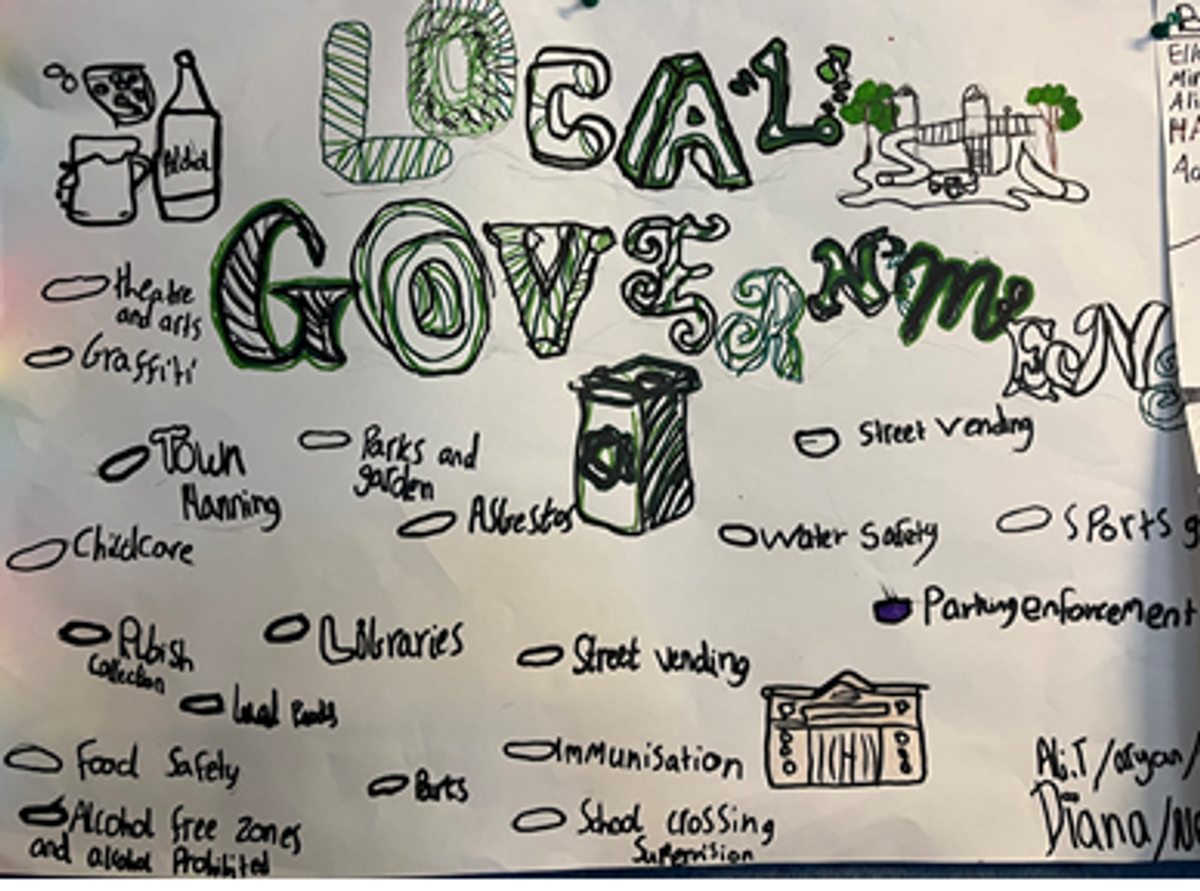 LOCAL
GOVERNMEN
Alcohol
theatre
and arts
Graffiti
Town
Planning
Parks and
garden
Asbestos
Street vending
Childcare
Water Safety
SPorts g
Parking enforcement
Rubish
Collection
Libraries
Street vending
Local Roads
Food Safety
Immunisation
Parks
Alcohol free zones
and alcohol Prohibited
School crossing
Supervision
Ali.T/aryan/
Diana/